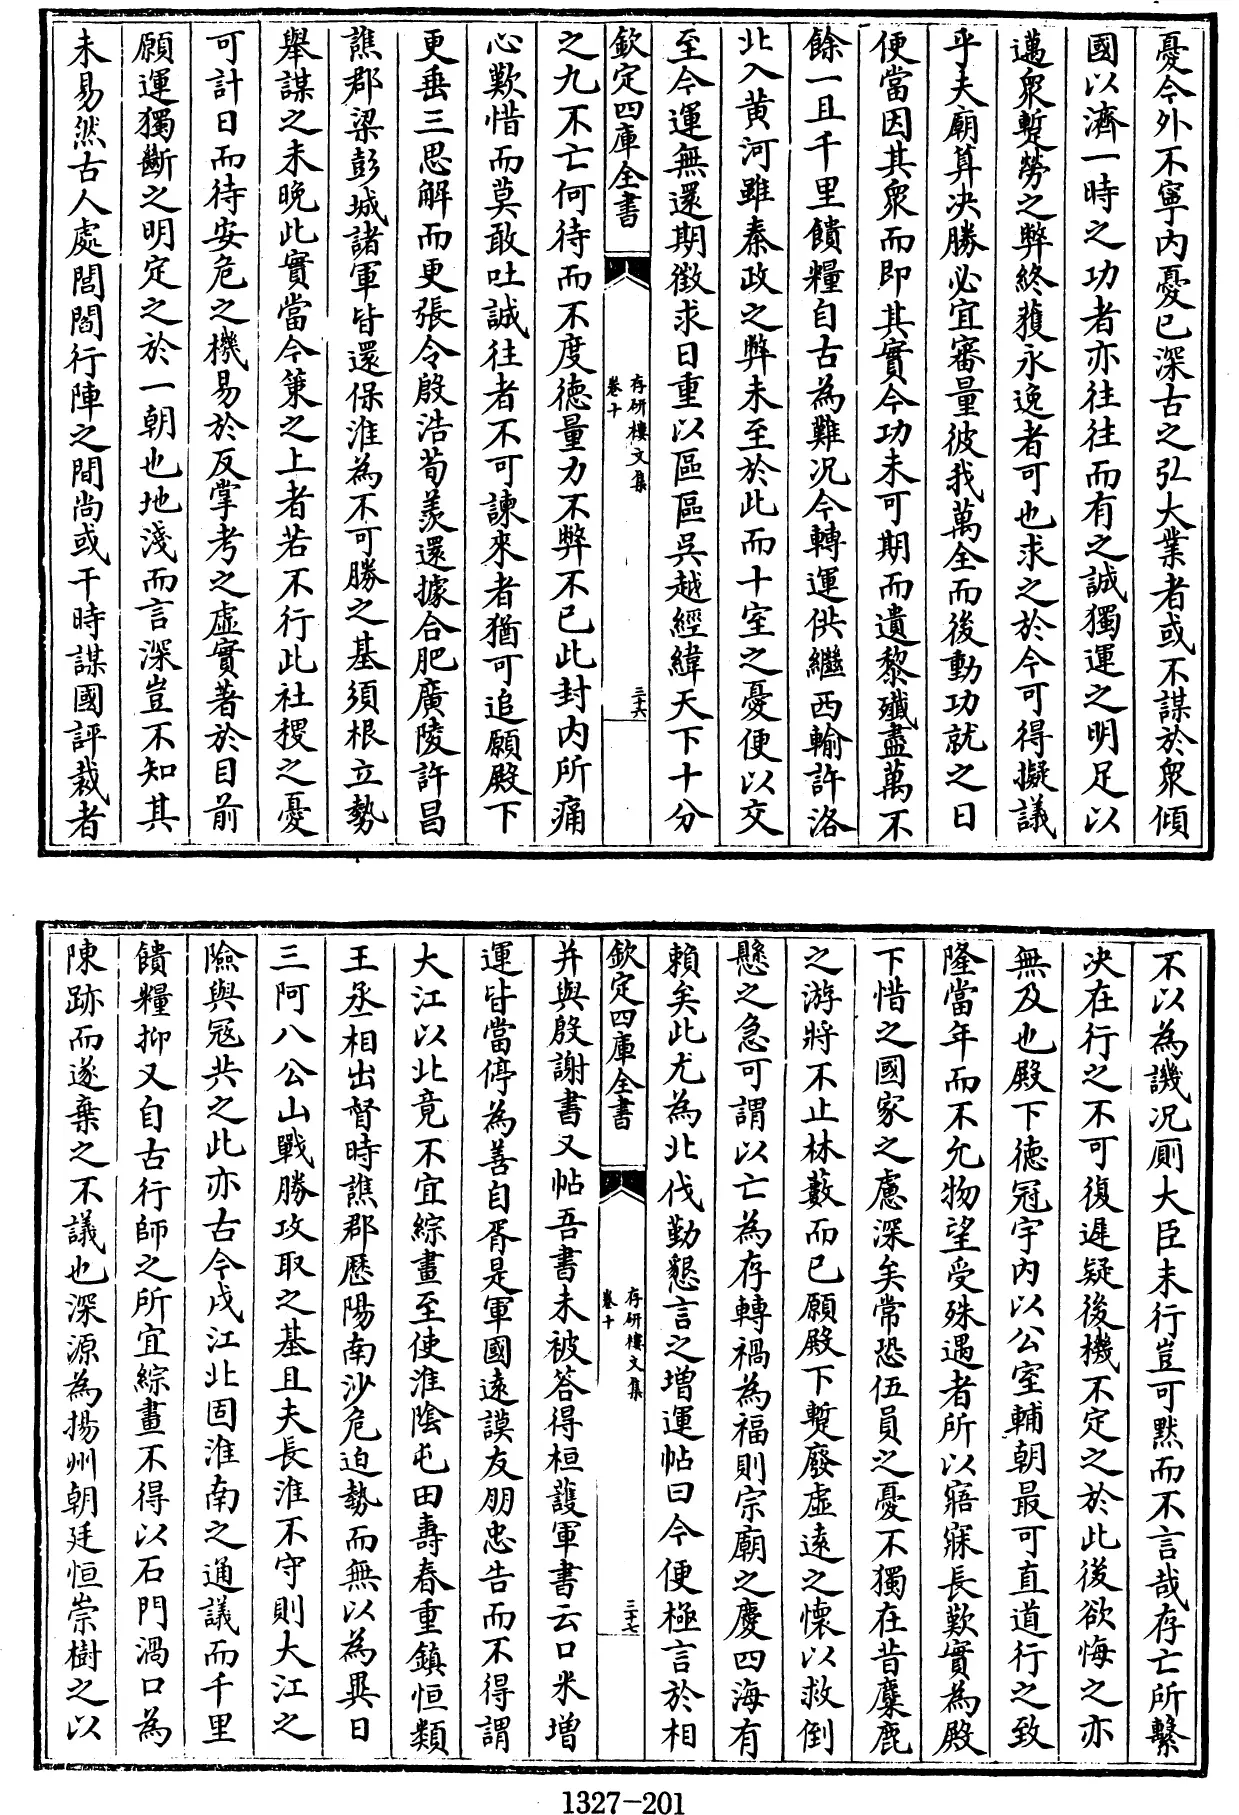 憂今外不寧内憂已深古之弘大業者或不謀於衆傾
國以濟一時之功者亦往往而有之誠獨運之明足以
邁衆蹔勞之弊終獲永逸者可也求之於今可得擬議
乎夫廟算决勝必宜審量彼我萬全而後動功就之日
便當因其衆而即其實今功未可期而遺黎殲盡萬不
餘一且千里饋糧自古為難况今轉運供繼西輸許洛
北入黄河雖秦政之弊未至於此而十室之憂便以交
至今運無還期徵求日重以區區吳越經緯天下十分
欽定四庫全書
存研樓文集
卷十
三十六
之九不亡何待而不度徳量力不弊不已此封内所痛
心歎惜而莫敢吐誠往者不可諫來者猶可追願殿下
更垂三思解而更張令殷浩荀羨還據合肥廣陵許昌
譙郡梁彭城諸軍皆還保淮為不可勝之基須根立勢
舉謀之未晚此實當今䇿之上者若不行此社稷之憂
可計日而待安危之機易於反掌考之虛實著於目前
願運獨斷之明定之於一朝也地淺而言深豈不知其
未易然古人處閭閻行陣之間尚或干時謀國評裁者
不以為譏况厠大臣末行豈可黙而不言哉存亡所繫
决在行之不可復遲疑後機不定之於此後欲悔之亦
無及也殿下徳冠宇内以公室輔朝最可直道行之致
隆當年而不允物望受殊遇者所以寤寐長歎實為殿
下惜之國家之慮深矣常恐伍員之憂不獨在昔麋鹿
之游將不止林藪而已願殿下蹔廢虛遠之懷以救倒
懸之急可謂以亡為存轉禍為福則宗廟之慶四海有
賴矣此尤為北伐勤懇言之増運帖曰今便極言於相
欽定四庫全書
存研樓文集
卷十
三十七
并與殷謝書又帖吾書未被答得桓護軍書云口米増
運皆當停為善自胥是軍國遠謨友朋忠告而不得謂
大江以北竟不宜綜畫至使淮隂屯田夀春重鎮恒類
王丞相出督時譙郡歴陽南沙危迫勢而無以為異日
三阿八公山戰勝攻取之基且夫長淮不守則大江之
險與冦共之此亦古今戍江北固淮南之通議而千里
饋糧抑又自古行師之所宜綜畫不得以石門渦口為
陳跡而遂棄之不議也深源為揚州朝廷恒崇樹之以
1327-201